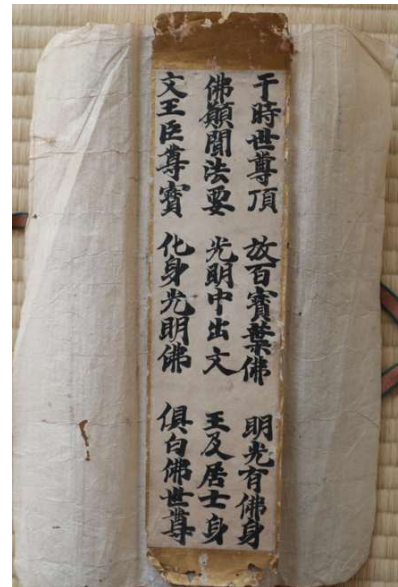 于時世尊頂 放百寶葉佛 明光有佛身
佛願聞法要 光明中出文 王及居士身
文王臣尊寶 化身光明佛 俱白佛世尊